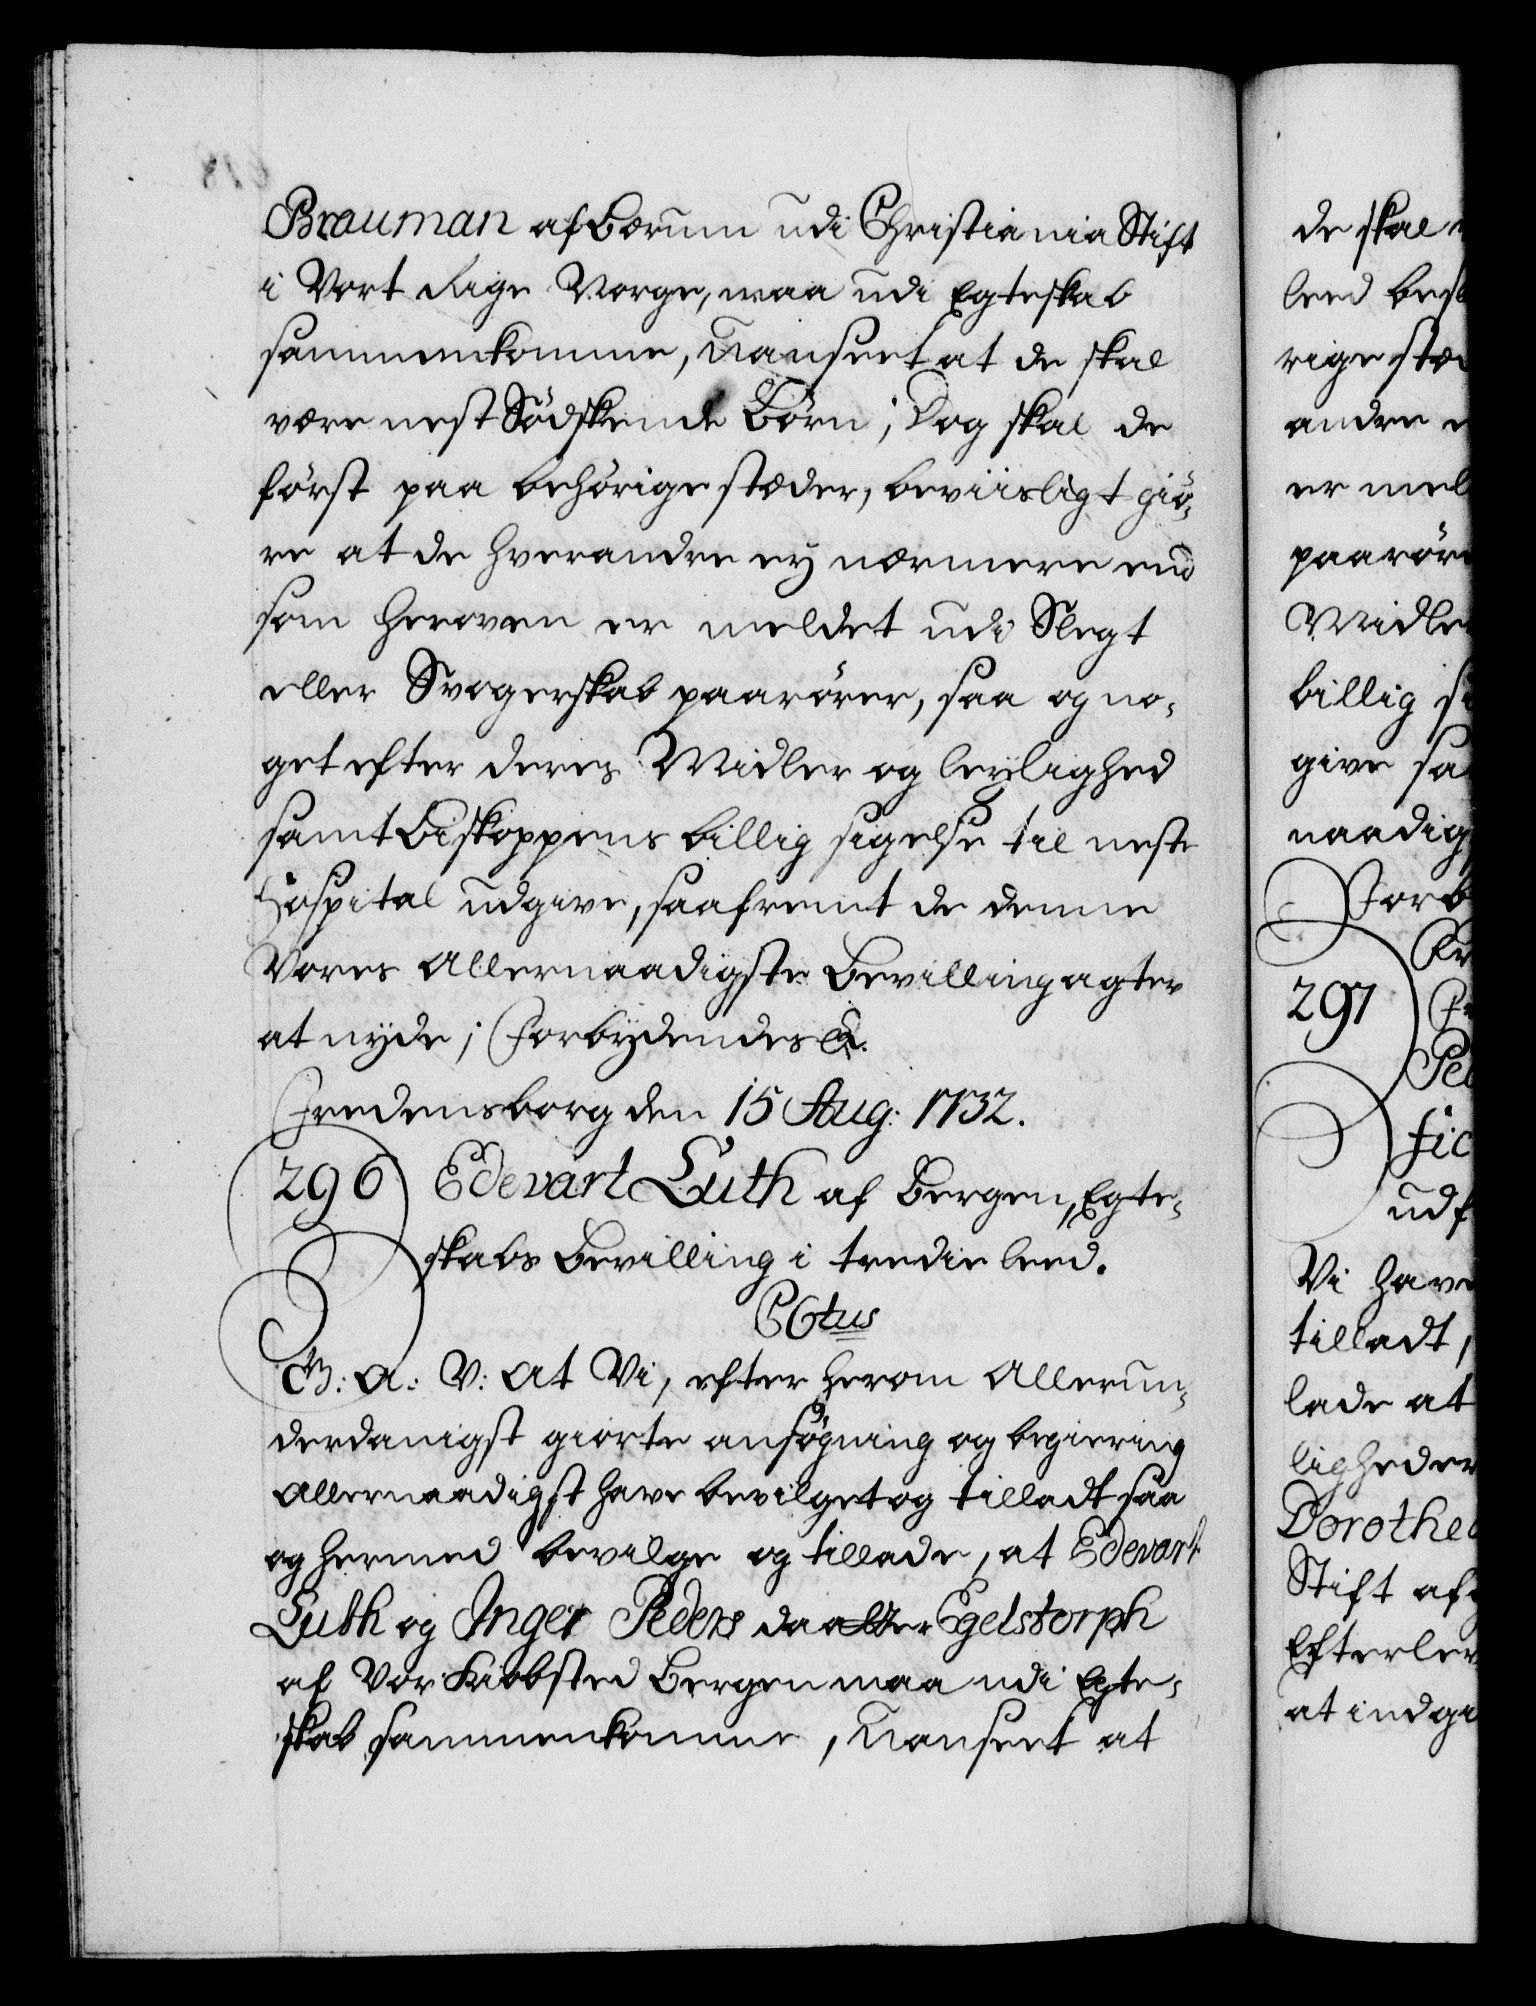 Brauman af Bærum udi Christiania Stift
i Vort Rige Norge, maa udi Egteskab
sammenkomme, Uanseet at de skal
være nest Södskende Börn; Dog skal de
först paa behörige stæder, beviisligt giö-
re at de hverandre ey nærmere end
som heroven er meldet udi Slegt
eller Svogerskab paarörer, saa og no-
get efter deres Midler og leylighed
samt Biskoppens billig sigelse til neste
Hospital udgive, saafremt de denne
Vores Allernaadigste Bevilling agter
at nyde; Forbydendes &.
Fredensborg den 15 Aug: 1732.
296 Edevart Luth af Bergen, Egte-
skabs Bevilling i tredie leed.
C6tus
G: A: V: At Vi, efter herom Allerun-
derdanigst giorte ansögning og begiering
Allernaadigst have bevilget og tilladt saa
og hermed bevilge og tillade, at Edevart
Luth og Inger Peders daatter Egelstorph
af Vor Kiöbsted Bergen maa udi Egte-
skab sammenkomme, Uanseet at
de skal
leed
rige
andre
er
paaröre
Midler
billig
give
naadig
297
udf
Vi have
tilladt,
lade at
ligheder
Dorothea
Stift af
Efterlev
at indgi